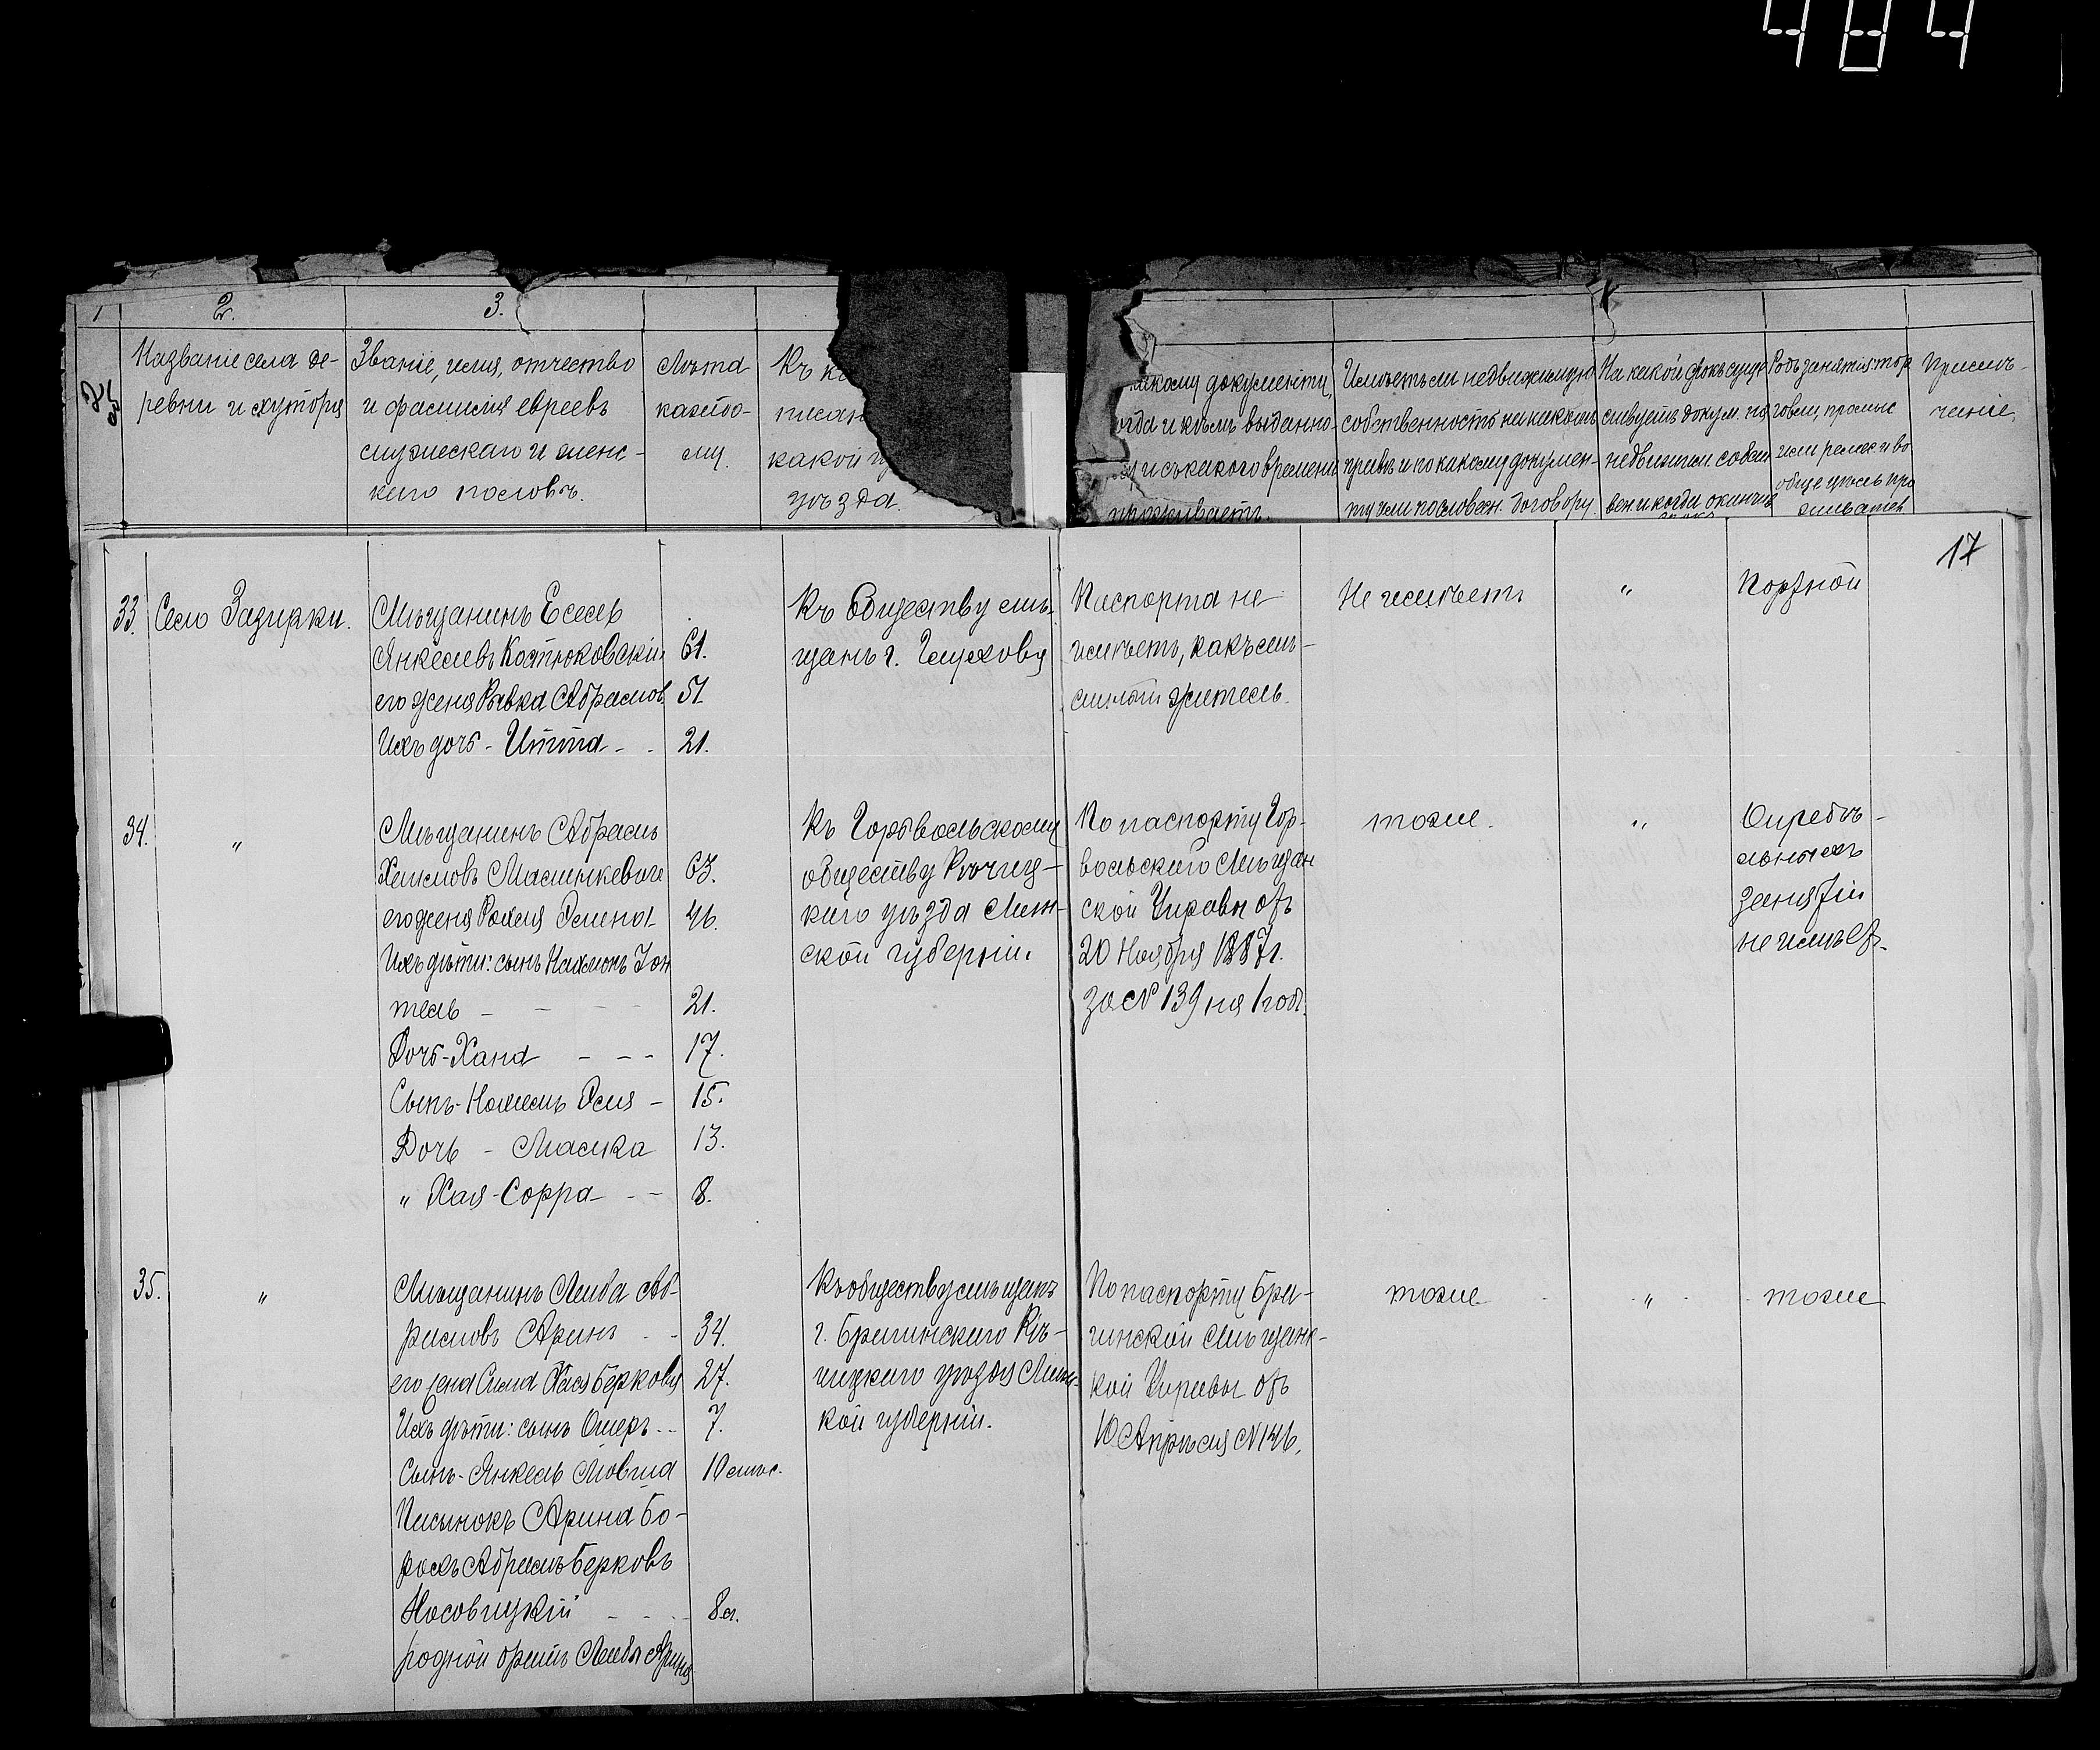 484
1
2.
3.
№
Названіе села де-
ревни и хутора
Званіе, имя, отчество
и фамилія евреевъ
мужескаго и женс-
каго половъ.
Лѣта
каждо-
му.
Къ ка
писан
какой гу
уѣзда.
какому документу,
огда и кѣмъ выданно-
му и съ какого времени
проживаетъ.
Имѣетъ ли недвижимую
собственность на какомъ
правѣ и по какому докумен-
ту или по словесн. договору.
На какой срокъ сущес
твуетъ докум. на
недвижим. собств
вен. и когда окончив
срокъ
Родъ занятія: тор
говли, промыс
или ремес. и во
обще чѣмъ про
живаетъ
Примѣ-
чаніе.
17
33. Село Задирки.
Мѣщанинъ Есель
Янкелевъ Костюковскій 61.
его жена Ривка Абрамов. 51.
Ихъ дочь - Итта - - 21.
Къ Обществу мѣ-
щанъ г. Глухова
Паспорта не
имѣетъ, какъ мѣ-
стный житель.
Не имѣетъ
"
Портной
34.
"
Мѣщанинъ Абрамъ
Хаимовъ Масинкевичъ 63.
его жена Рохля 46.
Ихъ дѣти: сынъ Нахманъ Зон
тель - - - - 21.
Дочь-Хана - - - 17.
Сынъ - 15.
Дочь - Масика 13.
" Хая-Сорра - - 8.
Къ Горвольскому
обществу Рѣчиц-
каго уѣзда Мин-
ской губерніи.
По паспорту Гор-
вольской Мѣщан
ской Управы отъ
20 Ноября 1887г.
за № 139 на 1 годъ.
тоже.
"
Опредѣ-
льныхъ
занятій
не имѣет.
35.
"
Мѣщанинъ Лейба Аб-
рамовъ Аринъ - - 34.
его жена Хася Беркова 27.
Ихъ дѣти: сынъ Ошеръ - - 7.
Сынъ - Янкель Мовша 10 мѣс.
Пасынокъ Арина Бо-
рохъ Абрамъ Берковъ
Носовицкій - - - 8 л.
родной братъ Лейбы Арина
Къ обществу мѣщанъ
г. Брагинскаго Рѣ-
чицкаго уѣзда Минс-
кой губерніи.
По паспорту Бра-
гинской Мѣщанс-
кой Управы отъ
10 Апрѣля № 146.
тоже
"
тоже